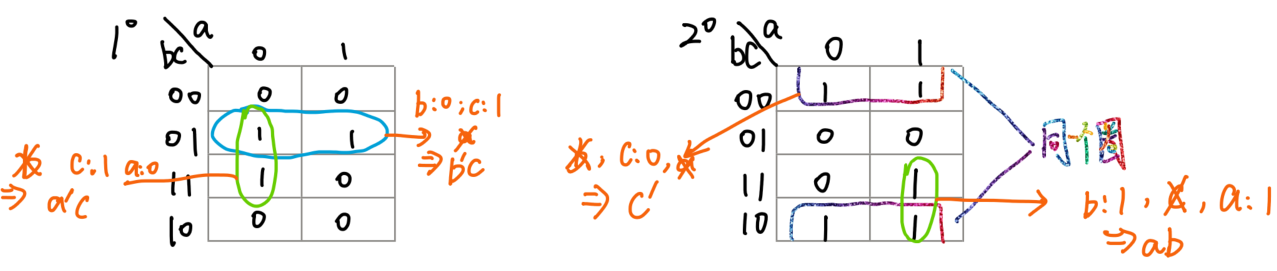 1°
a
bc
0 1
00 0 0
01 1 1
11 1 0
10 0 0
b:0;c:1
a
⇒ b'c
b c:1 a:0
⇒ a'c
2°
a
bc
0 1
00 1 1
01 0 0
11 0 1
10 1 1
b, c:0, a
⇒ c'
同一個圈
b:1, c, a:1
⇒ ab